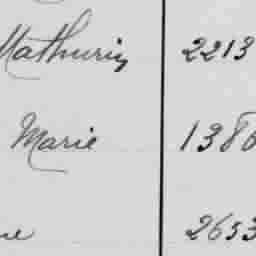 Mathurin 2213
Marie 1386
ne 2653